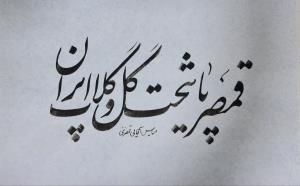 قمصر پایتخت گل و گلاب ایران